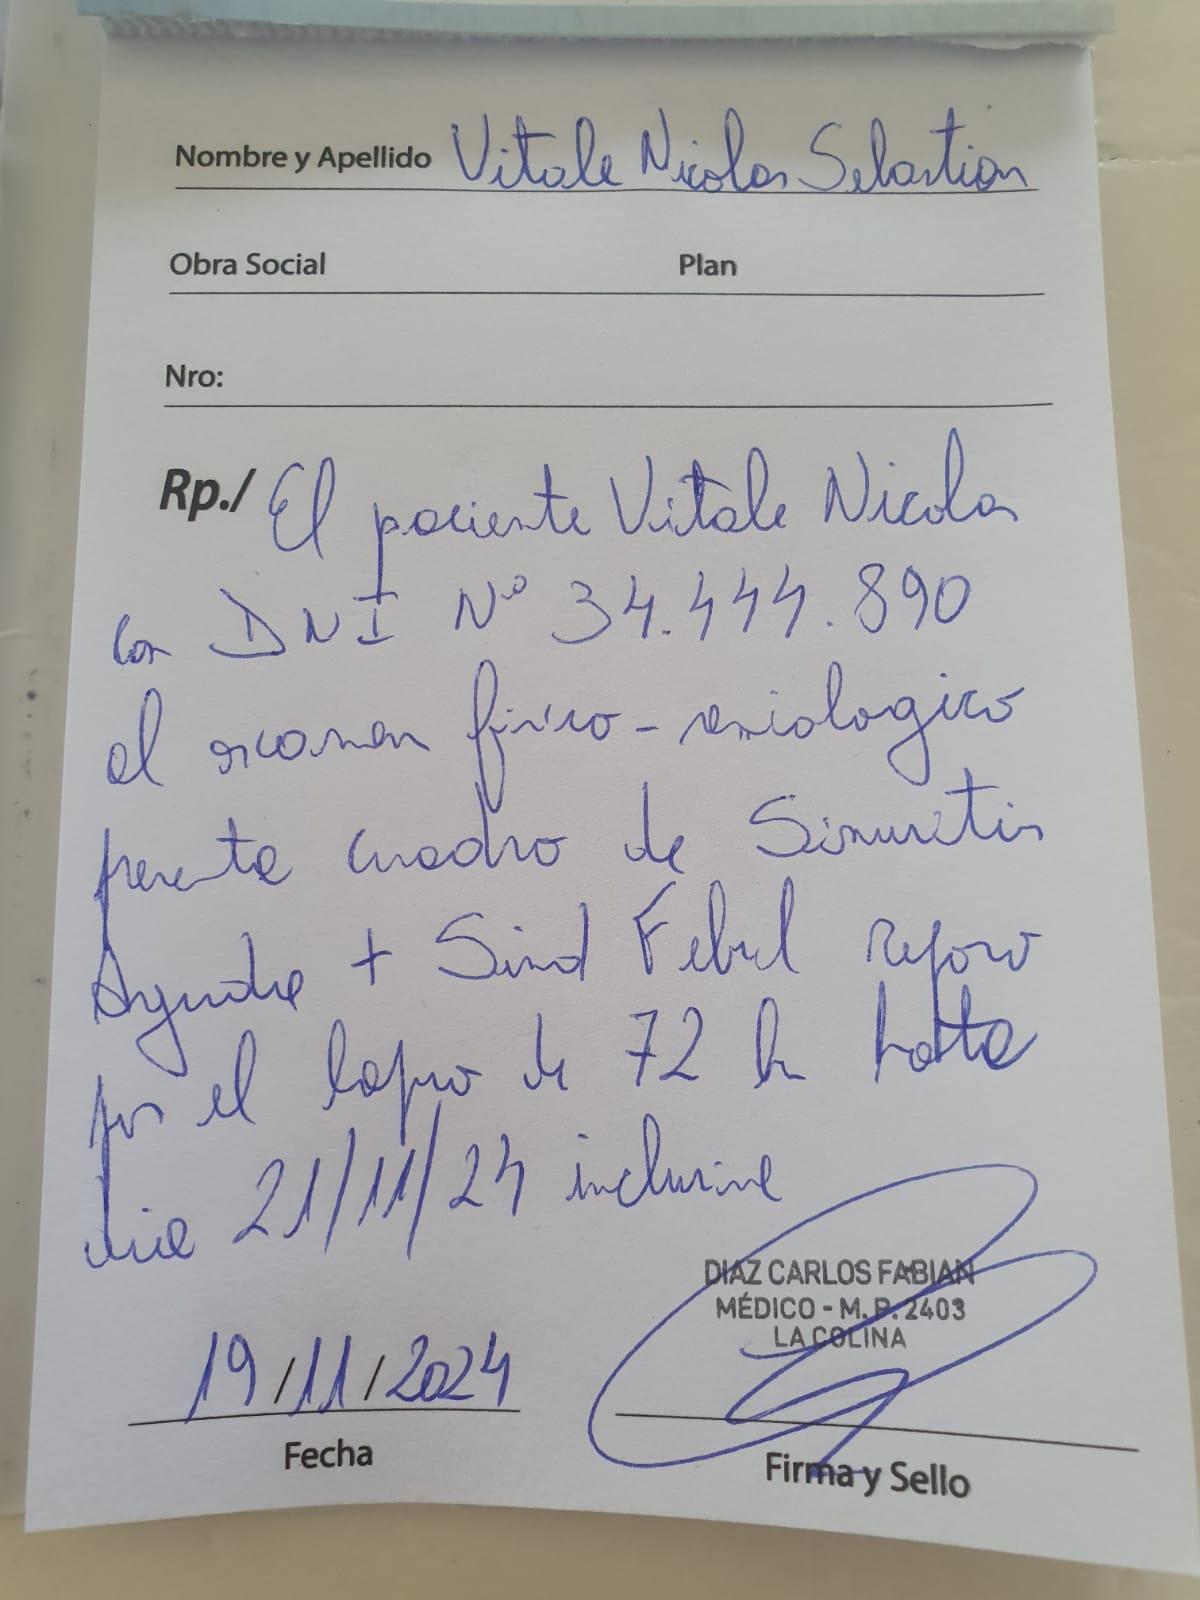 Nombre y Apellido Vitale Nicolas Sebastian
Obra Social Plan
Nro:
Rp./ El paciente Vitale Nicolas
con DNI Nº 34.444.890
el examen fisico-semiologico
presenta cuadro de Sinusitis
Aguda + Sind Febril reposo
por el lapso de 72 h hasta
dia 21/11/24 inclusive
DIAZ CARLOS FABIAN
MÉDICO - M.P. 2403
LA COLINA
19/11/2024
Fecha
Firma y Sello